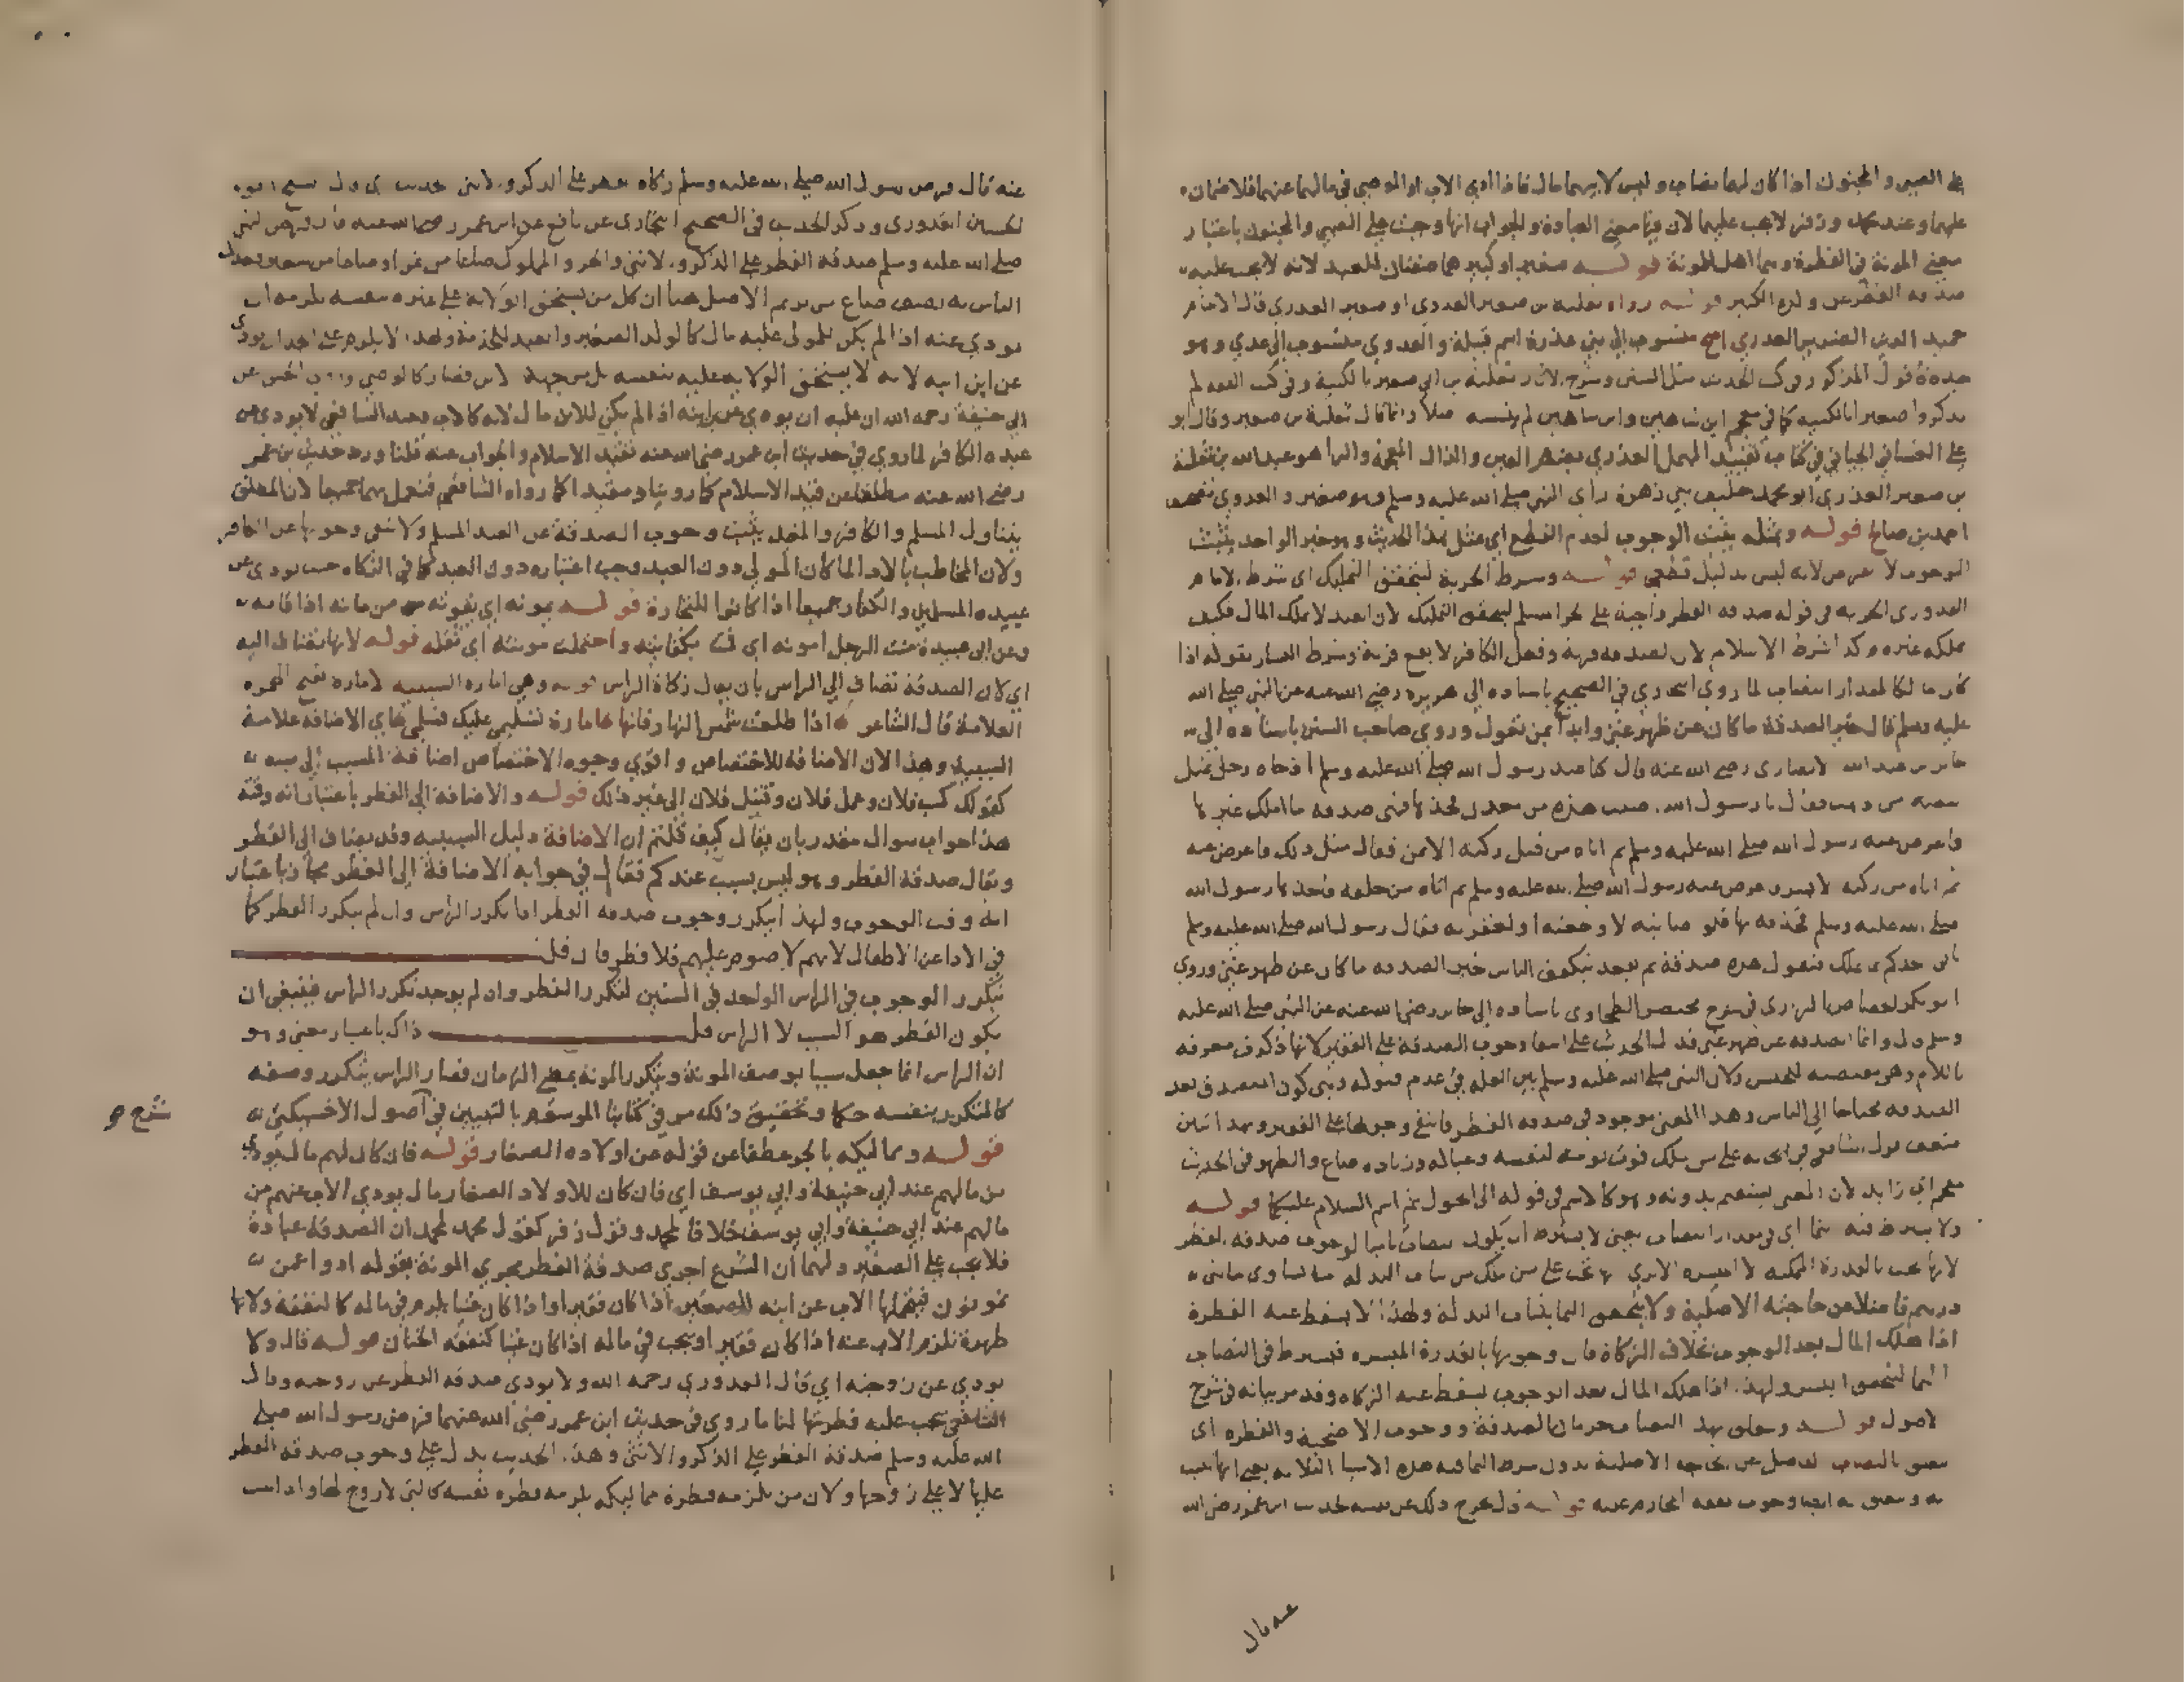 على الصبي والمجنون اذا كان لهما نصاب وليس لابيهما مال فاذا ادى الاب او الوصي في مالهما عنهما فلا ضمان
عليهما وعند محمد وزفر لا يجب عليهما لان فيها معنى العبادة والجواب انها وجبت على الصبي والمجنون باعتبار
معنى المونة في الفطرة وهما اهل المونة قوله صغير او كبير هما صفتان للعبد لانه لا يجب عليه
صدقه الفطر عن ولده الكبير قوله رواه ثعلبه بن صعير العدوي او صعير العذري قال الامام
حميد الدين الضرير العذري اصح منسوب الى بني عذرة اسم قبيلة والعدوي منسوب الى عدي وهو
جده قول المذكور في كتب الحديث مثل السنن وشرح الاثار ثعلبة بن ابي صعير بالكنية وفي كتب الفقه لم
يذكروا صعير ابالكنيه كما في معجم ابن شاهين وابن شاهين لم ينسبه اصلا وانما قال ثعلبة بن صعير وقال ابو
علي الغساني الجياني في كتاب تقييد المهمل العذري بضم العين والذال المعجمة والراء هو عبدالله بن ثعلبة
بن صعير العذري ابو محمد حليف بني زهرة راى النبي صلى الله عليه وسلم وهو صغير والعدوي تصحيف
احمد بن صالح قوله وبمثله يثبت الوجوب لعدم القطع اي بمثل هذا الحديث وهو خبر الواحد يثبت
الوجوب لا الفرض لانه ليس بدليل قطعي قوله وشرط الحرية ليتحقق التمليك اي شرط الامام
القدوري الحريه في قوله صدقه الفطر واجبة على الحر المسلم ليتحقق التمليك لان العبد لا يملك المال فكيف
يملكه غيره وكذا شرط الاسلام لان الصدقه قربة وفعل الكافر لا يقع قربة وشرط اليسار بقوله اذا
كان مالكا لمقدار النصاب لما روى البخاري في الصحيح باسناده الى ابي هريرة رضي الله عنه عن النبي صلى الله
عليه وسلم قال خير الصدقة ما كان عن ظهر غنى وابدأ بمن تعول وروى صاحب السنن باسناده الى
جابر بن عبد الله الانصاري رضي الله عنه قال كنا عند رسول الله صلى الله عليه وسلم اذ جاه رجل بمثل
بيضه من ذهب فقال يا رسول الله اصبت هذه من معدن فخذها فهي صدقه ما املك غيرها
فاعرض عنه رسول الله صلى الله عليه وسلم ثم اتاه من قبل ركنه الايمن فقال مثل ذلك فاعرض عنه
ثم اتاه من ركنه الايسر فاعرض عنه رسول الله صلى الله عليه وسلم ثم اتاه من خلفه فاخذها رسول الله
صلى الله عليه وسلم فخذفه بها فلو اصابته لاوجعته او لعقرته فقال رسول الله صلى الله عليه وسلم
ياتي احدكم بما يملك فيقول هذه صدقة ثم يقعد يتكفف الناس خير الصدقه ما كان عن ظهر غنى وروى
ابو بكر الجصاص الرازي في شرح مختصر الطحاوي باسناده الى جابر رضي الله عنه عن النبي صلى الله عليه
وسلم قال وانما الصدقه عن ظهر غنى فدل الحديث على انتفا وجوب الصدقة على الفقير لانها ذكرت معرفه
باللام وهي مقتضيه للجنس ولان النبي صلى الله عليه وسلم بين العله في عدم قبوله وهي كون المتصدق بعد
الصدقه محتاجا الى الناس وهذا المعنى موجود في صدقه الفطر فانتفى وجوبها على الفقير وبهذا تبين
ضعف قول الشافعي في انها تجب على من يملك قوت يومه لنفسه وعياله وزياده صاع والظهر في الحديث
مقحم اي زايد لان المعنى يستقيم بدونه وهو كالاسم في قوله الى الحول ثم اسم السلام عليكما قوله
ولا يشترط فيه النما اي في مقدار النصاب يعني لا يشترط ان يكون النصاب ناميا لوجوب صدقه الفطر
لانها تجب بالقدرة الممكنه لا الميسره الا يرى انها تجب على من ملك من ثياب البذله ما يساوي مايتي
درهم فاضلا عن حاجته الاصلية ولا يتحقق النما بثياب البذلة ولهذا لا يسقط عنه الفطرة
اذا هلك المال بعد الوجوب بخلاف الزكاة فان وجوبها بالقدرة الميسره فيشترط في النصاب
النما ليتحقق اليسر ولهذا اذا هلك المال بعد الوجوب يسقط عنه الزكاه وقد مر بيانه في شرح
الاصول قوله ويتعلق بهذا النصاب حرمان الصدقة ووجوب الاضحية والفطره اي
يتعلق بالنصاب الفاضل عن الحاجه الاصلية بدون شرط النما فيه هذه الاشيا الثلاثه يعني انها تجب
به ويتعلق به ايضا وجوب نفقه المحارم عليه قوله قال يخرج ذلك عن نفسه لحديث ابن عمر رضي الله
عنه قال
عنه قال فرض رسول الله صلى الله عليه وسلم زكاة الفطر على الذكر والانثى الحديث اي قال الشيخ ابو
الحسين القدوري وذكر الحديث في الصحيح البخاري عن نافع عن ابن عمر رضي الله عنه قال فرض النبي
صلى الله عليه وسلم صدقة الفطر على الذكر والانثى والحر والمملوك صاعا من تمر او صاعا من شعير فعدل
الناس به نصف صاع من بر ثم الاصل هنا ان كل من يستحق الولاية على غيره بنفسه يلزمه ان
يودي عنه اذا لم يكن للمولى عليه مال كالولد الصغير والعبد للخدمة ولهذا لا يلزم على الجد ان يودي
عن ابن ابنه لانه لا يستحق الولايه عليه بنفسه بل من جهة الاب فصار كالوصي وروى الحسن عن
ابي حنيفة رحمه الله ان عليه ان يودي عن ابن ابنه اذا لم يكن للابن مال لانه كالاب وعند الشافعي لا يودي عن
عبده الكافر لما روي في حديث ابن عمر رضي الله عنه تقييد الاسلام والجواب عنه قلنا ورد حديث بن عمر
رضي الله عنه مطلقا عن قيد الاسلام كما روينا ومقيدا كما رواه الشافعي فنعمل بهما جميعا لان المطلق
يتناول المسلم والكافر والمقيد يثبت وجوب الصدقة عن العبد المسلم ولا ينفى وجوبها عن الكافر
ولان المخاطب بالاداء لما كان المولى دون العبد وجب اعتباره دون العبد كما في الزكاه حيث يودي عن
عبيده المسلمين والكفار جميعا اذا كانوا للتجارة قوله يمونه اي يقوته من مانه اذا قام به
وعن ابي عبيدة منت الرجل امونه اي قمت بكفايته واحتملت مونته اي ثقله قوله لانها تضاف اليه
اي لان الصدقة تضاف الى الراس بان يقال زكاة الراس قوله وهي امارة السببيه الاماره بفتح الهمزه
العلامة قال الشاعر اذا طلعت شمس النهار فانها امارة تسليمي عليك فسلمي اي الاضافه علامة
السببية وهذا لان الاضافة للاختصاص واقوى وجوه الاختصاص اضافة المسبب الى سببه
كقولك كسب فلان وعمل فلان وقتل فلان الى غير ذلك قوله والاضافة الى الفطر باعتبار انه وقته
هذا جواب سوال مقدر بان يقال كيف قلتم ان الاضافة دليل السببيه وقد يضاف الى الفطر
ويقال صدقة الفطر وهو ليس بسبب عندكم فقال في جوابه الاضافة الى الفطر مجاز باعتبار
انه وقت الوجوب ولهذا يتكرر وجوب صدقه الفطر اذا تكرر الراس وان لم يتكرر الفطر كما
في الاداء عن الاطفال لانهم لا صوم عليهم فلا فطر فان قلت
يتكرر الوجوب في الراس الواحد في السنين لتكرر الفطر وان لم يوجد تكرر الراس فينبغي ان
يكون الفطر هو السبب لا الراس قلت ذاك باعتبار معنى وهو
ان الراس انما جعل سببا بوصف المونة ويتكرر المونة بمضي الزمان فصار الراس بتكرر وصفه
كالمتكرر بنفسه حكما وتحقيق ذلك مر في كتابنا الموسوم بالتبيين في اصول الاخسيكثي
شرح
قوله ومماليكه بالجر عطفا عن قوله عن اولاده الصغار قوله فان كان لهم مال يودي
من مالهم عند ابي حنيفة وابي يوسف اي فان كان للاولاد الصغار مال يودي الاب عنهم من
مالهم عند ابي حنيفة وابي يوسف خلافا لمحمد وقول زفر كقول محمد لمحمد ان الصدقة عبادة
فلا يجب على الصغير ولهما ان الشرع اجرى صدقة الفطر مجرى المونة بقوله ادوا عمن
تمونون فيتحملها الاب عن ابنه الصغير اذا كان فقيرا واذا كان غنيا يلزم في ماله كالنفقة ولانها
طهرة تلزم الاب عنه اذا كان فقيرا ويجب في ماله اذا كان غنيا كنفقة الختان قوله قال ولا
يودي عن زوجته اي قال القدوري رحمه الله ولا يودي صدقه الفطر عن زوجته وقال
الشافعي يجب عليه فطرتها لنا ما روي في حديث ابن عمر رضي الله عنهما فرض رسول الله صلى
الله عليه وسلم صدقة الفطر على الذكر والانثى وهذا الحديث يدل على وجوب صدقه الفطر
عليها لا على زوجها ولان من يلزمه فطرة مماليكه يلزمه فطرة نفسه كالتي لا زوج لها واذا